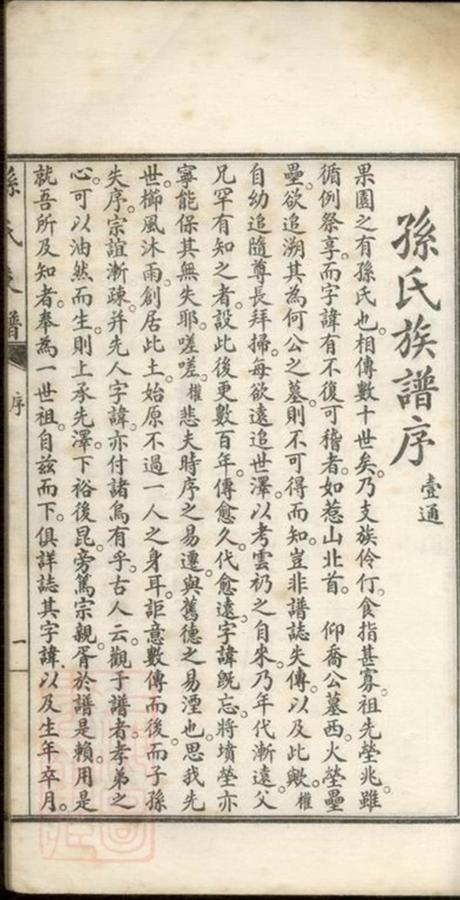 孫氏族譜序 壹通
果園之有孫氏也。相傳數十世矣。乃支族伶仃。食指甚寡。祖先塋兆。雖
循例祭享。而字諱有不復可稽者。如惹山北首。 仰喬公墓西。火塋壘
壘。欲追溯其為何公之墓。則不可得而知。豈非譜誌失傳。以及此歟。權
自幼追隨尊長拜掃。每欲遠追世澤。以考雲礽之自來。乃年代漸遠。父
兄罕有知之者。設此後更數百年。傳愈久。代愈遠。字諱旣忘。將墳塋亦
寧能保其無失耶。嗟嗟。權悲夫時序之易遷。與舊德之易湮也。思我先
世。櫛風沐雨。創居此土。始原不過一人之身耳。詎意數傳而後。而子孫
失序。宗誼漸疎。并先人字諱。亦付諸烏有乎。古人云。觀于譜者。孝弟之
心。可以油然而生。則上承先澤。下裕後昆。旁篤宗親。胥於譜是賴。用是
就吾所及知者。奉為一世祖。自茲而下。俱詳誌其字諱。以及生年卒月。
孫氏族譜 序 一